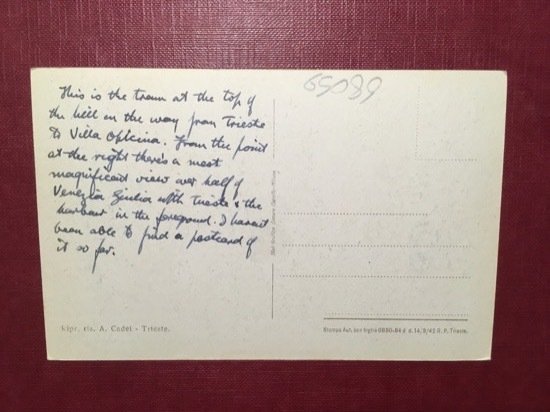 This is the tram at the top of
the hill on the way from Trieste
to Villa Opicina. From the point
at the right there's a most
magnificent view over half of
Venezia Giulia with Trieste & the
harbour in the foreground. I haven't
been able to find a postcard of
it so far.
65089
ripr. ris. A. Cadel - Trieste.
Stampa Aut. per foglio 0890-64 d. d. 14/9/42 R. P. Trieste.